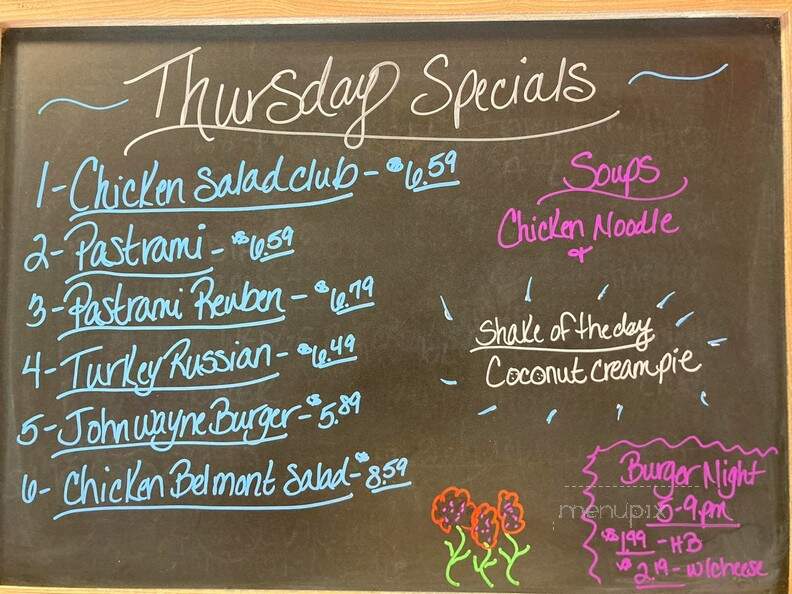 Thursday Specials
1-Chicken Salad club - $6.59
2-Pastrami - $6.59
3-Pastrami Reuben - $6.79
4-Turkey Russian - $6.49
5-John wayne Burger - $5.89
6-Chicken Belmont Salad - $8.59
Soups
Chicken Noodle
+
Shake of the day
Coconut cream pie
Burger Night
-9pm
$1.99 - HB
$2.19 - w/cheese
menupix